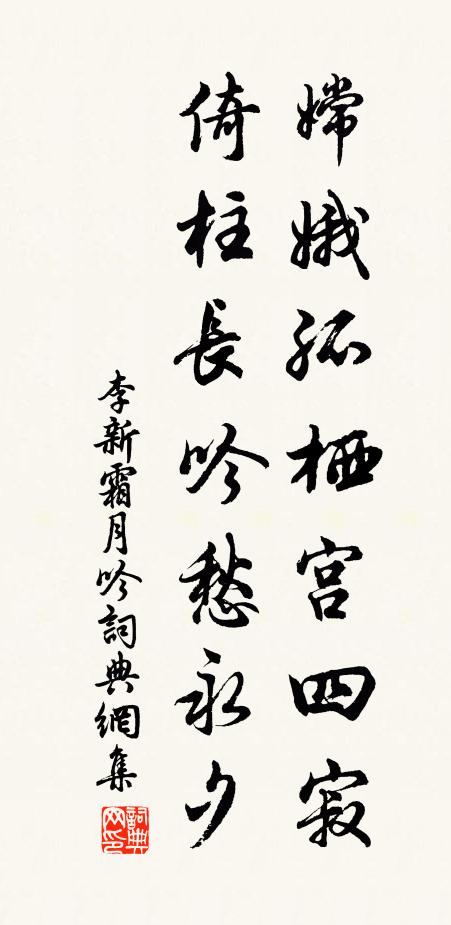 嫦娥孤栖宫四寂
倚柱長吟愁永夕
李新霜月吟詞典網集
詞典網印